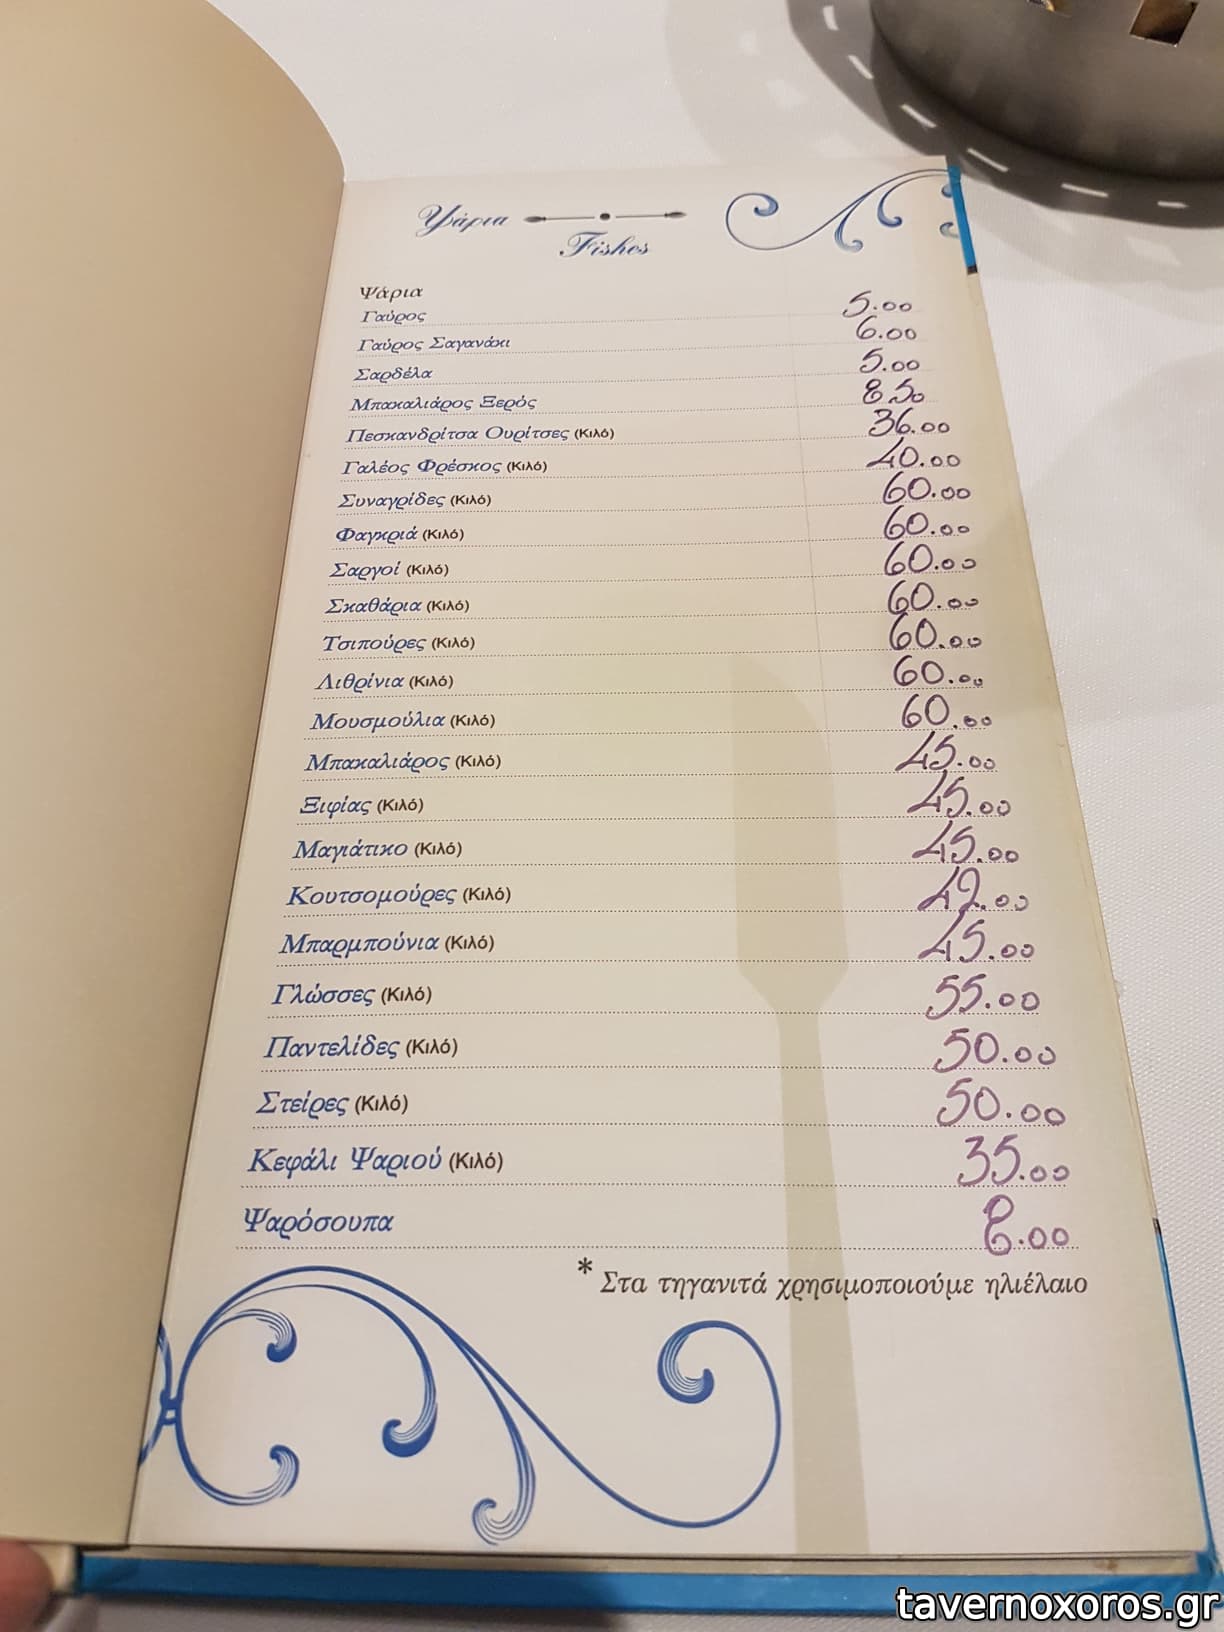 Ψάρια
Fishes
Ψάρια
Γαύρος 5.00
Γαύρος Σαγανάκι 6.00
Σαρδέλα 5.00
Μπακαλιάρος Ξερός 8.50
Πεσκανδρίτσα Ουρίτσες (Κιλό) 36.00
Γαλέος Φρέσκος (Κιλό) 40.00
Συναγρίδες (Κιλό) 60.00
Φαγκριά (Κιλό) 60.00
Σαργοί (Κιλό) 60.00
Σκαθάρια (Κιλό) 60.00
Τσιπούρες (Κιλό) 60.00
Λιθρίνια (Κιλό) 60.00
Μουσμούλια (Κιλό) 60.00
Μπακαλιάρος (Κιλό) 45.00
Ξιφίας (Κιλό) 45.00
Μαγιάτικο (Κιλό) 45.00
Κουτσομούρες (Κιλό) 42.00
Μπαρμπούνια (Κιλό) 45.00
Γλώσσες (Κιλό) 55.00
Παντελίδες (Κιλό) 50.00
Στείρες (Κιλό) 50.00
Κεφάλι Ψαριού (Κιλό) 35.00
Ψαρόσουπα 8.00
* Στα τηγανιτά χρησιμοποιούμε ηλιέλαιο
tavernoxoros.gr